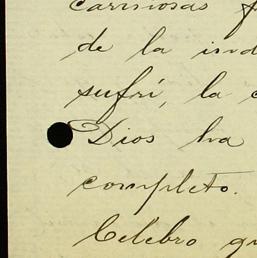 cariñosas
de la ind
sufrí, la c
Dios ha
completo.
Celebro qu